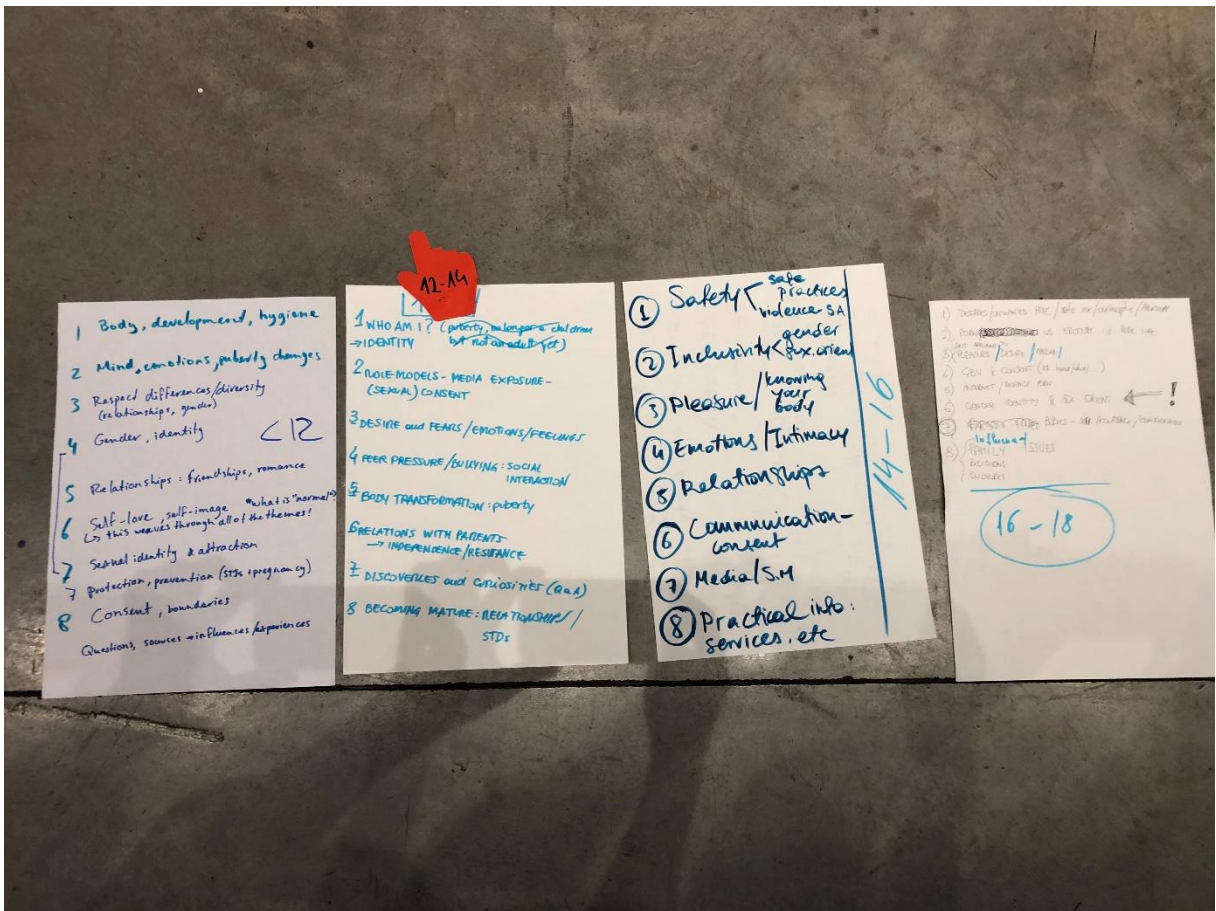 1 Body, development, hygiene
2 Mind, emotions, puberty changes
3 Respect differences/diversity
(relationships, gender)
4 Gender, identity
<12
5 Relationships: friendships, romance
6 Self-love, self-image *what is "normal"?
↳ this weaves through all of the themes!
7 Sexual identity & attraction
7 Protection, prevention (STIs + pregnancy)
8 Consent, boundaries
Questions, sources → influences/experiences
12-14
1 WHO AM I? (puberty, no longer a children
→ IDENTITY but not an adult yet)
2 ROLE MODELS - MEDIA EXPOSURE -
(SEXUAL) CONSENT
3 DESIRE and FEARS/EMOTIONS/FEELINGS
4 PEER PRESSURE/BULLYING: SOCIAL
INTERACTION
5 BODY TRANSFORMATION: puberty
6 RELATIONS WITH PARENTS
→ INDEPENDENCE/RESISTANCE
7 DISCOVERIES and curiosities (Q&A)
8 BECOMING MATURE: RELATIONSHIPS/
STDs
1 Safety safe
practices
violence SA
2 Inclusivity gender
sex. orient
3 Pleasure/knowing
your
body
4 Emotions/Intimacy
5 Relationships
6 Communication-
consent
7 Media/S.M
8 Practical info:
services, etc
14-16
1)
2)
3) PLEASURE/DESIRE/
4) GBV & CONSENT
5) INTERNET/
6) GENDER IDENTITY & SEX ORIENT !
7) BODIES -
8) Influence
FAMILY ISSUES
RELIGIONS
CULTURES
16-18